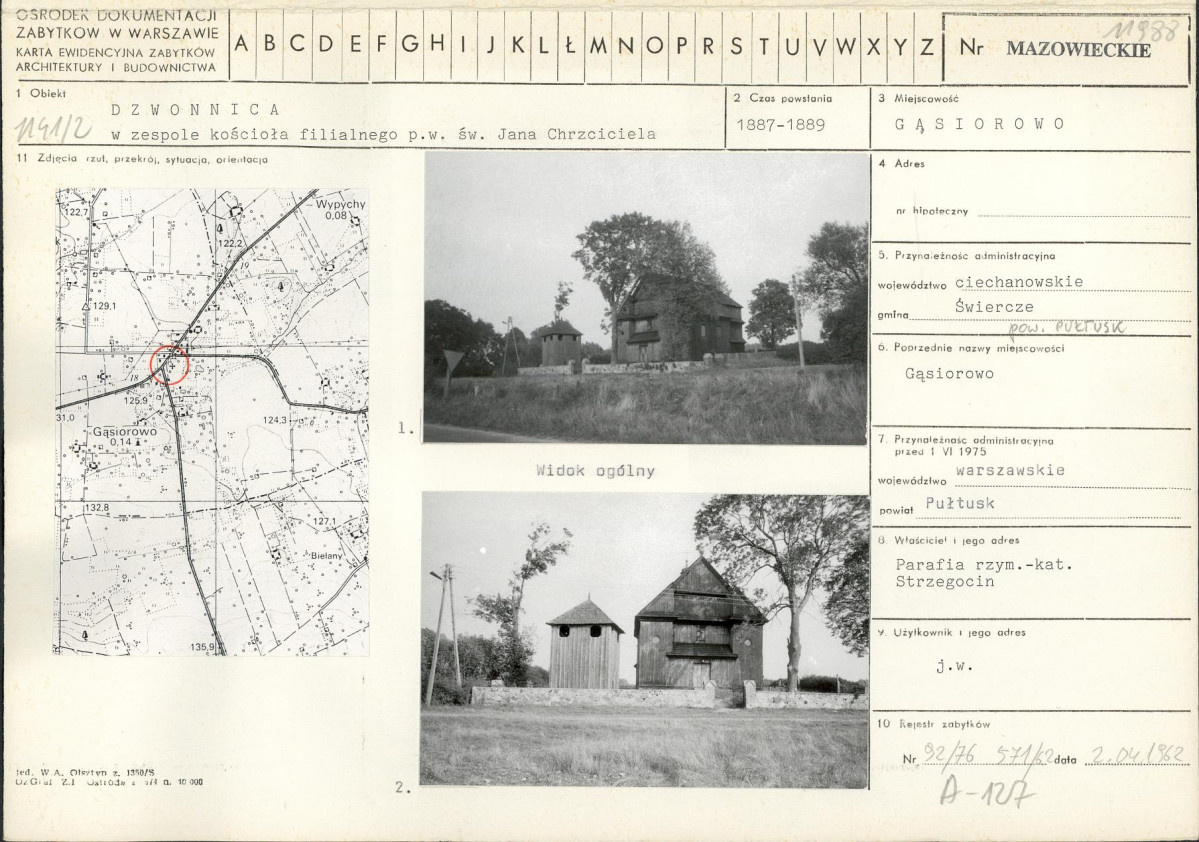 OŚRODEK DOKUMENTACJI
ZABYTKÓW W WARSZAWIE
KARTA EWIDENCYJNA ZABYTKÓW
ARCHITEKTURY I BUDOWNICTWA
A B C D E F G H I J K L Ł M N O P R S T U V W X Y Z
Nr MAZOWIECKIE
11988
1 Obiekt
DZWONNICA
1141/2
w zespole kościoła filialnego p.w. św. Jana Chrzciciela
2 Czas powstania
1887-1889
3 Miejscowość
GĄSIOROWO
11 Zdjęcia rzut, przekrój, sytuacja, orientacja
Wypychy
0,08
122,7
122,2
129,1
18
125,9
31,0
124,3
Gąsiorowo
0,14
132,8
127,1
Bielany
135,9
1.
Widok ogólny
2.
4 Adres
nr hipoteczny
5. Przynależność administracyjna
województwo ciechanowskie
gmina Świercze
pow. PUŁTUSK
6. Poprzednie nazwy miejscowości
Gąsiorowo
7. Przynależność administracyjna
przed 1 VI 1975
województwo warszawskie
powiat Pułtusk
8. Właściciel i jego adres
Parafia rzym.-kat.
Strzegocin
9. Użytkownik i jego adres
j.w.
10 Rejestr zabytków
Nr 92/76 571/62 data 2.04.1962
A-127
W.A. Olsztyn z. 1350/S